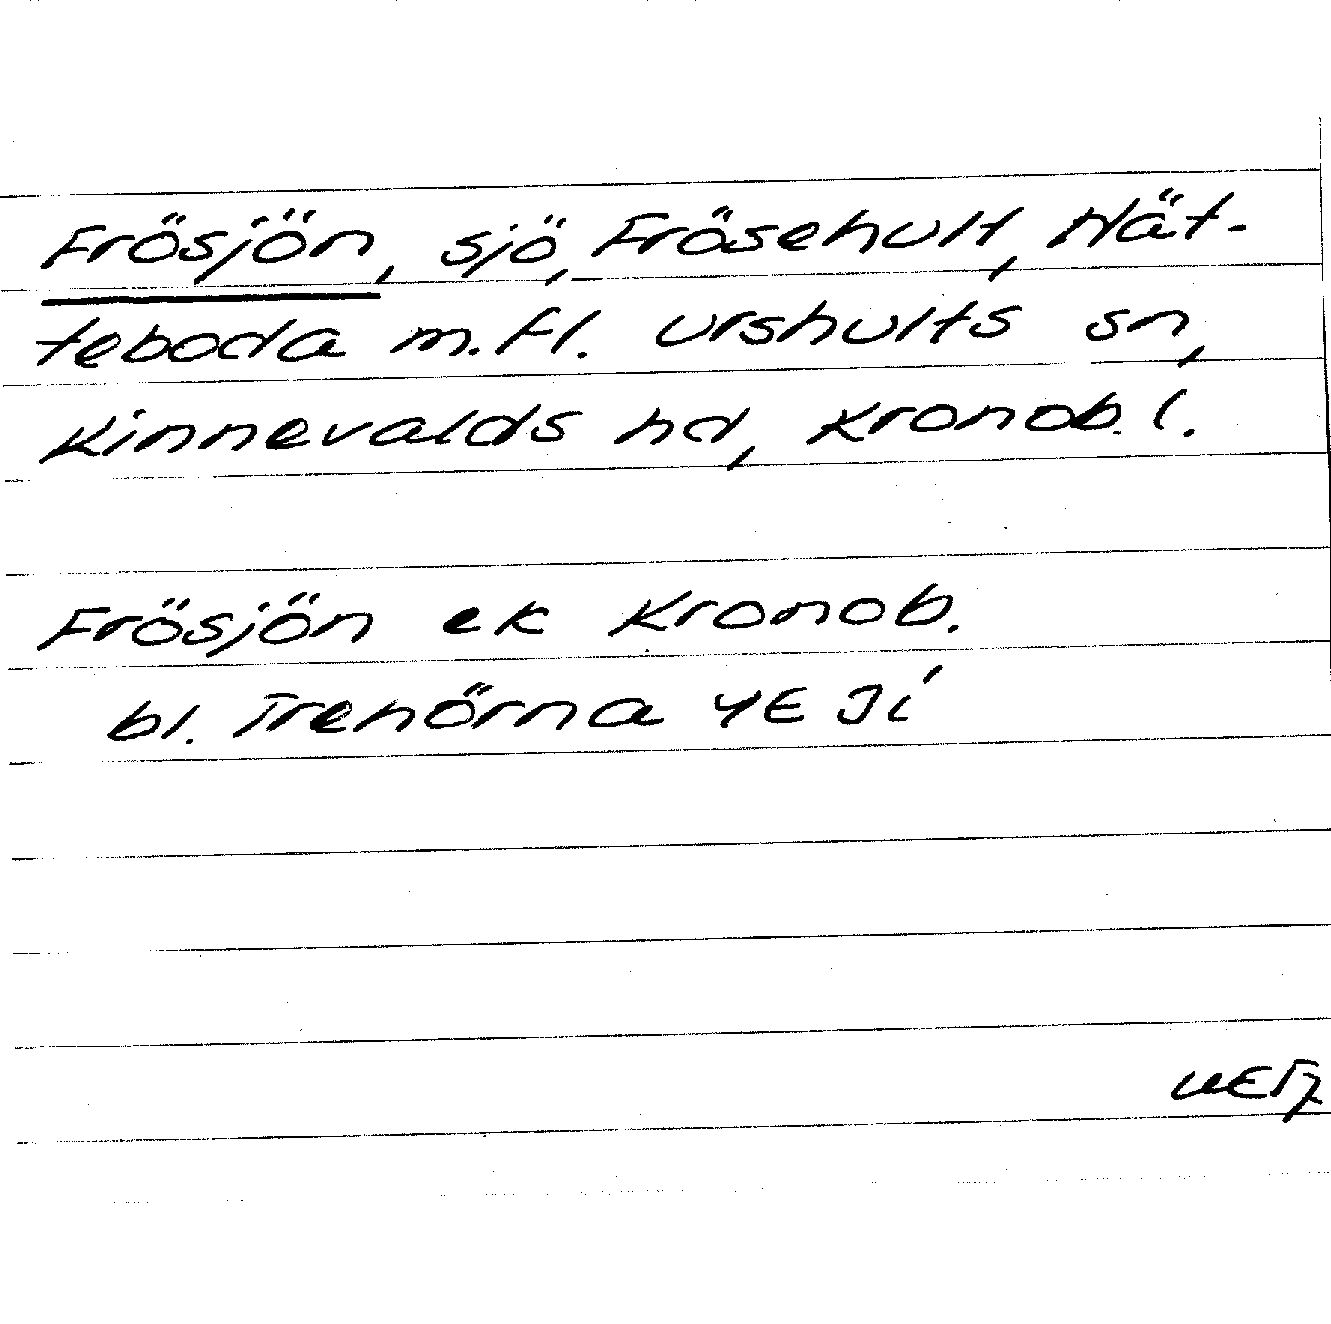 Frösjön, sjö, Frösehult, Nät-
teboda m.fl. Urshults sn,
Kinnevalds hd, Kronob. l.
Frösjön ek Kronob.
bl. Trehörna 4E Ji